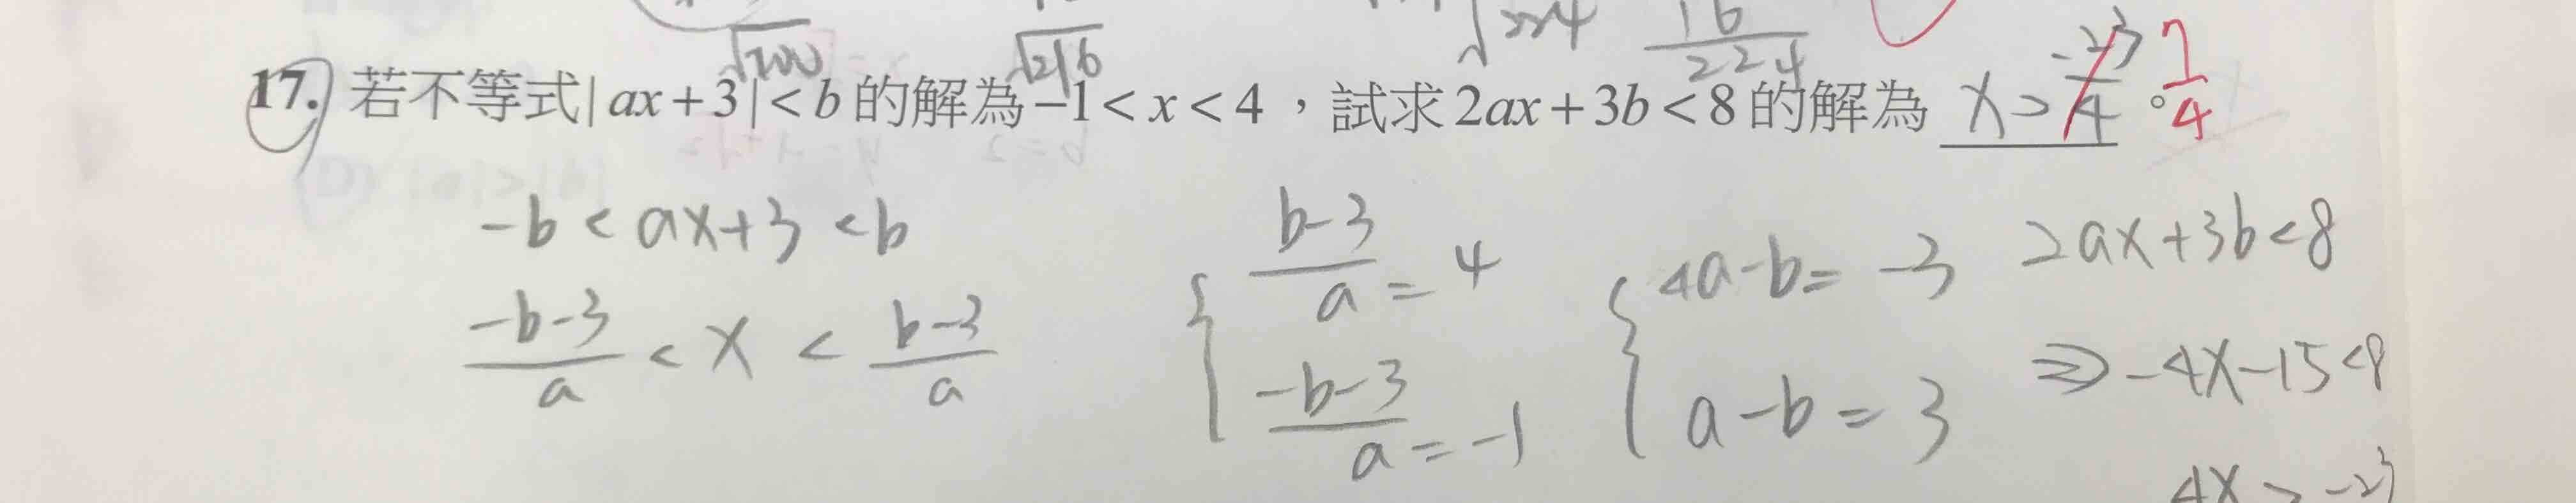 √200 √216 √224 16/224
17. 若不等式|ax+3|<b的解為−1<x<4，試求2ax+3b<8的解為 x > -23/4 。 7/4
-b < ax+3 < b
(-b-3)/a < x < (b-3)/a
{ (b-3)/a = 4
(-b-3)/a = -1
{ 4a-b = -3
a-b = 3
2ax+3b<8
⇒ -4x-15<8
4x > -23